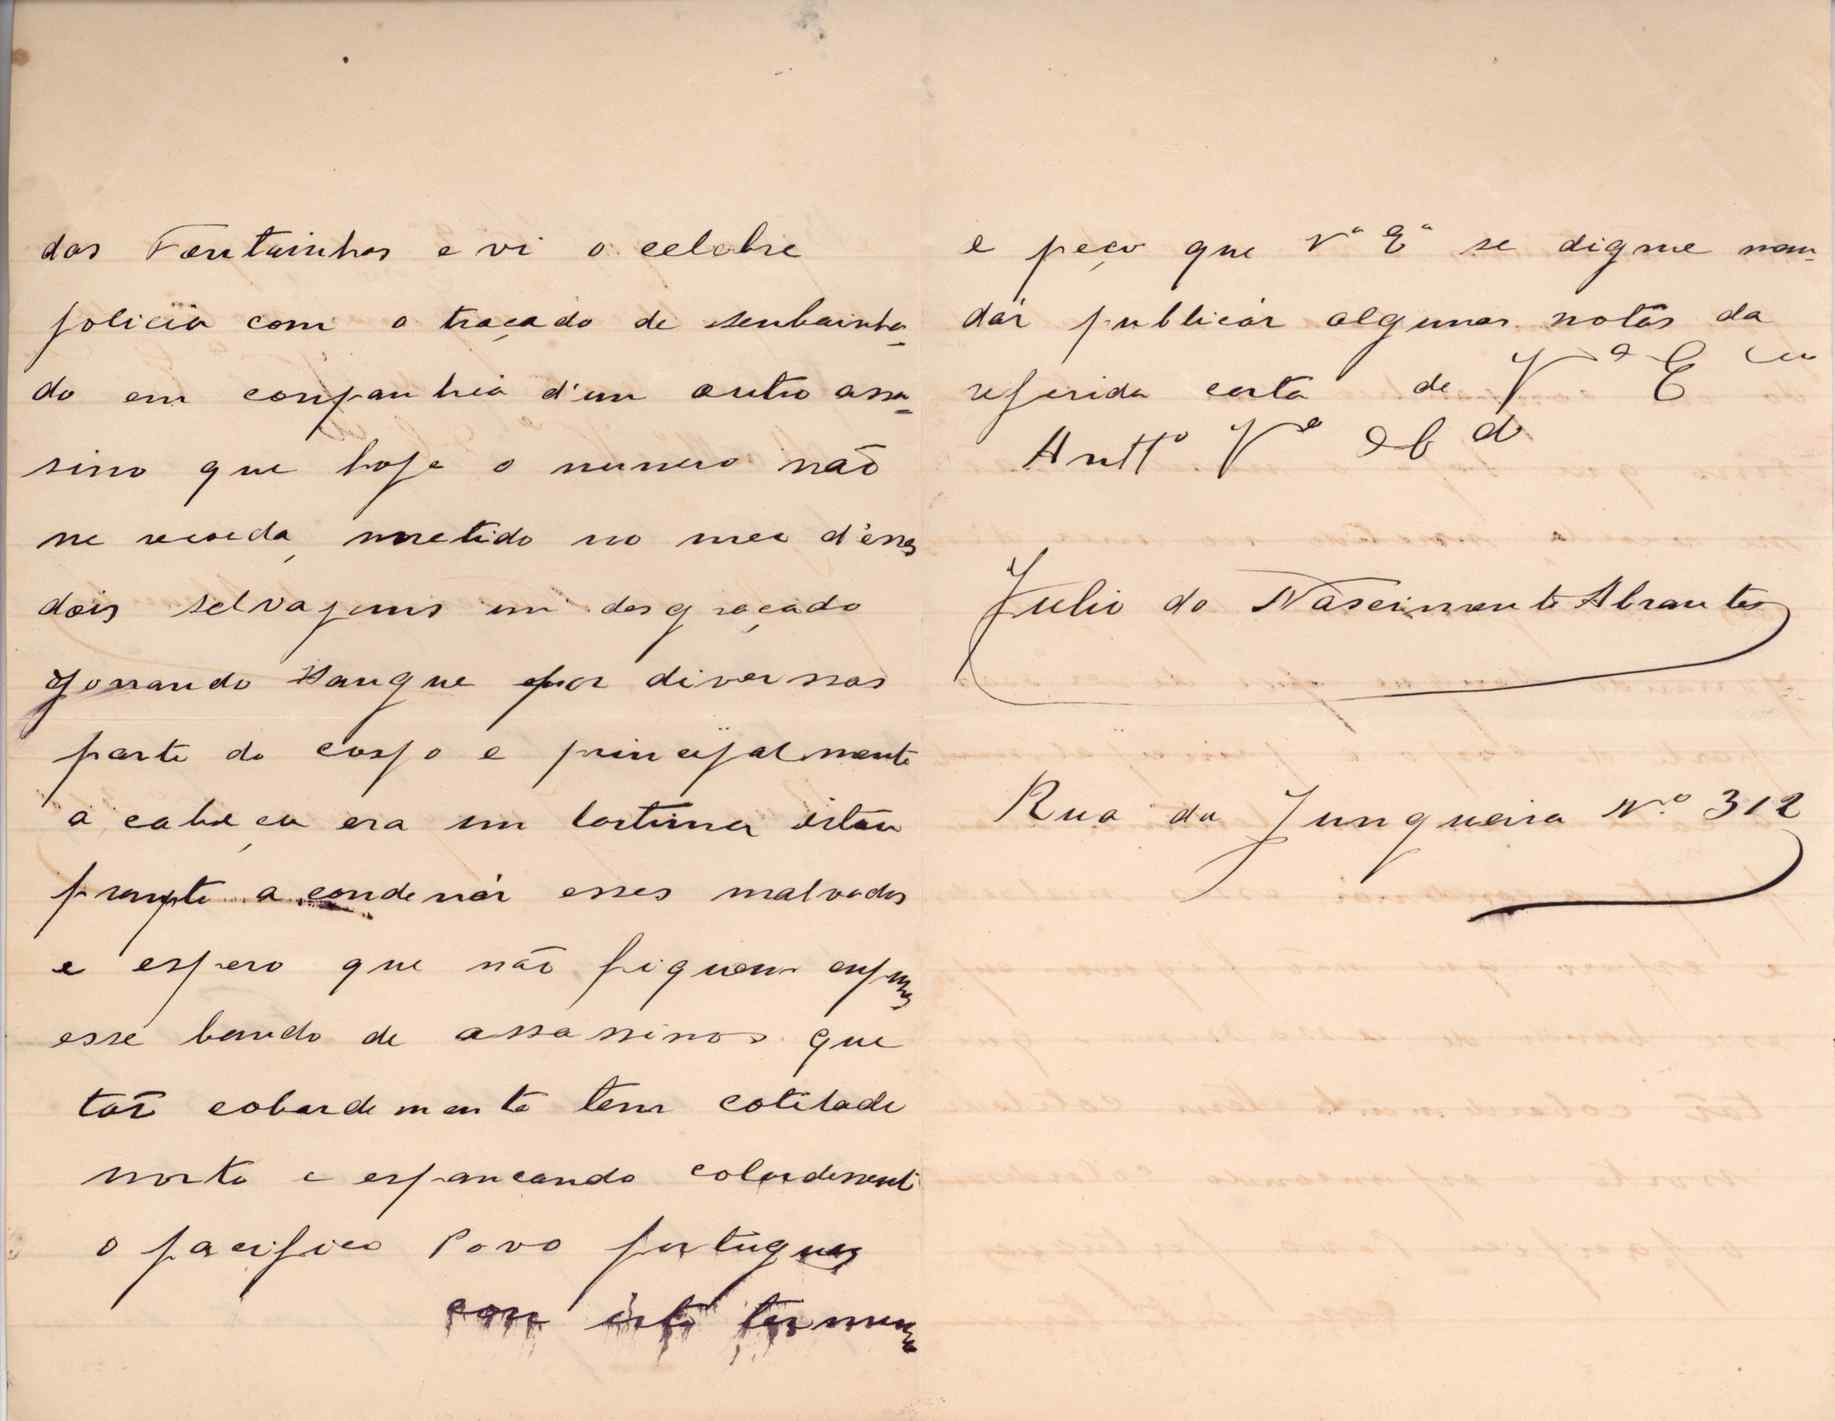 das Fontainhas e vi o celebre
policia com o traçado de senbainha-
do em conpanhia d'um outro assa-
sino que hoje o numero não
me recorda, metido no meio d'eses
dois selvajens um desgraçado
jorrando sangue por diversas
parte do corpo e principalmente
a cabeça era um lastima istou
prompto a condenár esses malvados
e espero que não fiquem empunes
esse bando de assassinos que
tão cobardemente tem
morto e espancando cobardemente
o pacifico Povo portugues
com isto termino
e peço que Vª Eª se digne man-
dár publicár algumas notas da
referida carta de Vª E
Antt.º Vº
Julio do Nascimento Abrantes
Rua da Junqueira N.º 312